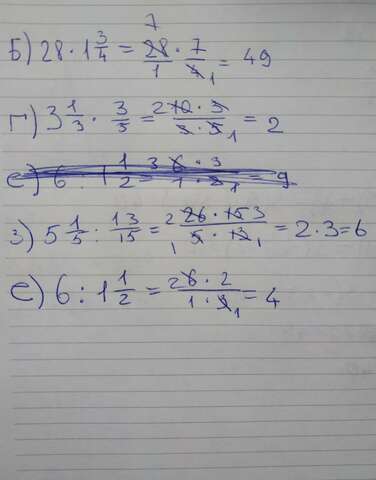 7
Б) 28 · 1 3/4 = 28/1 · 7/4 1 = 49
г) 3 1/3 · 3/5 = 2 10 · 3/3 · 5 1 = 2
е) 6 : 1 1/2 = 3 6 · 3/1 · 2 1 = 9
з) 5 1/5 : 13/15 = 2 26 · 15 3/1 5 · 13 1 = 2 · 3 = 6
е) 6 : 1 1/2 = 2 6 · 2/1 · 3 1 = 4